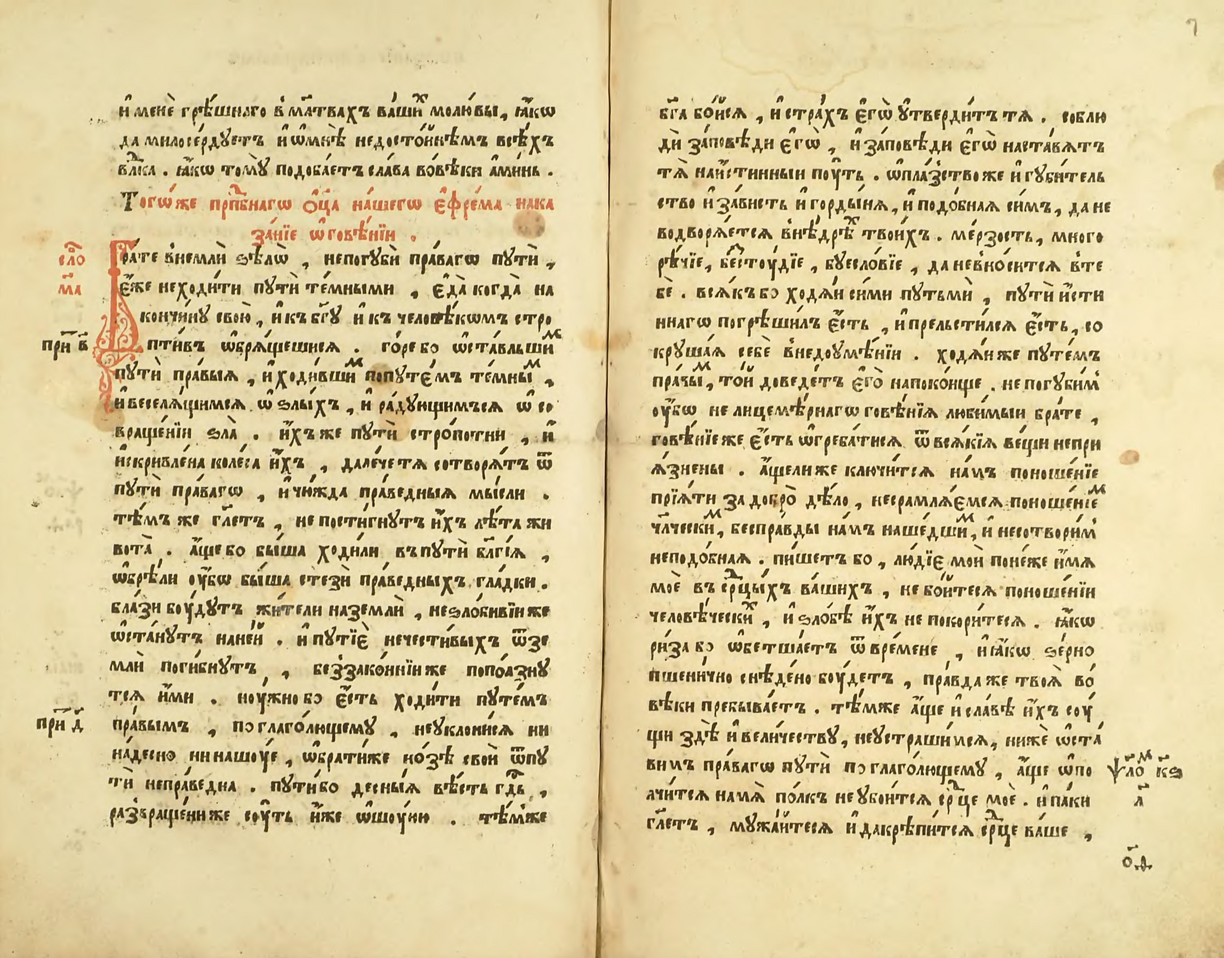 и҆ менѐ грѣ́шнаго в мл҃твахъ ва́ших молю́ вы, ꙗ҆́кѡ
да милосе́рдуетъ и҆ ѡ҆ мнѣ̀ недосто́йнѣмъ всѣ́хъ
влⷣка . ꙗ҆́кѡ томꙋ̀ подоба́етъ сла́ва во́вѣки а҆ми́нь .
Тогѡ́же прпⷣбнагѡ ѻ҆ц҃а на́шегѡ є҆фре́ма нака
за́нїе ѡ҆ говѣ́нїи .
сло́
ма
Бра́те вне́мли ѕѣлѡ̀ , непогꙋбѝ пра́вагѡ пꙋтѝ ,
є҆́же неходи́ти пꙋтѝ те́мными , є҆да̀ когда̀ на
кончи́нꙋ свою̀ , и҆ къ бг҃ꙋ и҆ къ человѣ́кѡмъ стро
при́т в҃
пти́въ ѡ҆бря́щешися . го́ре бо ѡ҆ста́вльшим
пꙋтѝ пра́выѧ , и҆ ходи́вшим попꙋте́мъ те́мным ,
и҆ веселѧ́щимсѧ ѡ҆ ѕлы́хъ , и҆ ра́дꙋющимъсѧ ѡ҆ со
враще́нїи ѕла̀ . и҆́хъже пꙋтѝ стро́потни , и҆
и҆скривле́на коле́са и҆́хъ , дале́че тѧ сотворѧ́тъ ѿ
пꙋтѝ пра́вагѡ , и҆ чю́жда пра́ведныѧ мы́сли .
тѣ́мъ же гл҃етъ , не пости́гнꙋтъ и҆́хъ лѣ́та жи
вота̀ . а҆́ще бо бы́ша ходи́ли въ пꙋтѝ бл҃гі́ѧ ,
ѡ҆брѣ́ли ᲂу҆́бѡ бы́ша стезѝ пра́ведныхъ гла́дки .
бла́зи бꙋ́дꙋтъ жи́тели наземлѝ , неѕло́бивїи же
ѡ҆ста́нꙋтъ нанейⷭ . и҆ пꙋтїѐ нечести́выхъ ѿзе
млѝ поги́бнꙋтъ , беззако́ннїи же попо́лзнꙋ
тсѧ и҆́ми . нꙋ́жно бо є҆́сть ходи́ти пꙋте́мъ
при́т д҃
пра́вымъ , по глаго́лющемꙋ , неꙋклони́сѧ ни
на́десно ни нашꙋ́е , ѡ҆брати́же но́зѣ своѝ ѿпꙋ
тѝ непра́ведна . пꙋти́бо десны́ѧ вѣ́сть гдⷭь ,
развраще́ни же сꙋ́ть и҆̀же ѡ҆шꙋ́юю . тѣ́мже
бг҃а бо́йсѧ , и҆ стра́хъ є҆гѡ̀ ᲂу҆тверди́тъ тѧ . соблю
дѝ за́повѣди є҆гѡ̀ , и҆ за́повѣди є҆гѡ̀ наста́вѧтъ
тѧ̀ наи́стинныи пꙋ́ть . ѡ҆пла́зство же и҆ гꙋби́тель
ство и҆ за́висть и҆ горды́нѧ , и҆ подо́бнаѧ си́мъ , да не
водворѧ́етсѧ в нѣ́дрѣх твои́хъ . ме́рзость , много
рѣ́чїе , бестꙋ́дїе , бꙋесло́вїе , да невно́ситсѧ в те
бѐ . всѧ́къ бо ходѧ́и си́ми пꙋтьмѝ , пꙋтѝ и҆́сти
ннагѡ погрѣши́лъ є҆́сть , и҆ прельсти́лсѧ є҆́сть , со
крꙋша́ѧ себѐ в недоꙋмѣ́нїи . ходѧ́и же пꙋте́мъ
пра́вым , то́й доведе́тъ є҆го̀ напоконце̑ . не погꙋби́м
ᲂу҆́бѡ не лицемѣ́рнагѡ говѣ́нїѧ люби́мыи бра́те ,
говѣ́нїе же є҆́сть ѡ҆греба́тисѧ ѿ всѧ́кїѧ ве́щи непри
ѧ́знены . а҆́ще ли же ключи́тсѧ на́мъ поноше́нїе
прїѧ́ти за добро̀ дѣ́ло , несрамлѧ́емсѧ поноше́нїем
чл҃ческим , беспра́вды на́мъ наше́дшим , и҆ несотвори́м
неподо́бнаѧ . пи́шетъ бо , лю́дїе мои̑ поне́же и҆́мѧ
моѐ въ срⷣцыхъ ва́шихъ , не бо́йтесѧ поноше́нїи
человѣ́ческих , и҆ ѕло́бѣ и҆́хъ не покори́тесѧ . ꙗ҆́кѡ
ри́за бо ѡ҆бетша́етъ ѿ вре́мене , и҆ ꙗ҆́кѡ зе́рно
пшени́чно снѣ́дено бꙋ́детъ , пра́вда же твоѧ̀ во́
вѣки пребыва́етъ . тѣ́мже а҆́ще и҆ сла́вѣ и҆́хъ сꙋ́
щи здѣ̀ и҆ вели́чествꙋ , неꙋстраши́мсѧ , ни́же ѡ҆ста́
вимъ пра́вагѡ пꙋтѝ по глаго́лющемꙋ , а҆́ще ѡ҆по
ѱало́м кѕ
л҃
лчи́тсѧ намѧ̀ по́лкъ не ꙋбои́тсѧ срⷣце моѐ . и҆ па́ки
гл҃етъ , мꙋжа́йтесѧ и҆ дакрѣпи́тсѧ срⷣце ва́ше ,
о҃д
7